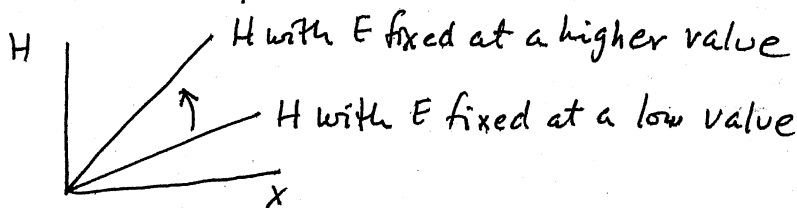 H
H with E fixed at a higher value
H with E fixed at a low value
X